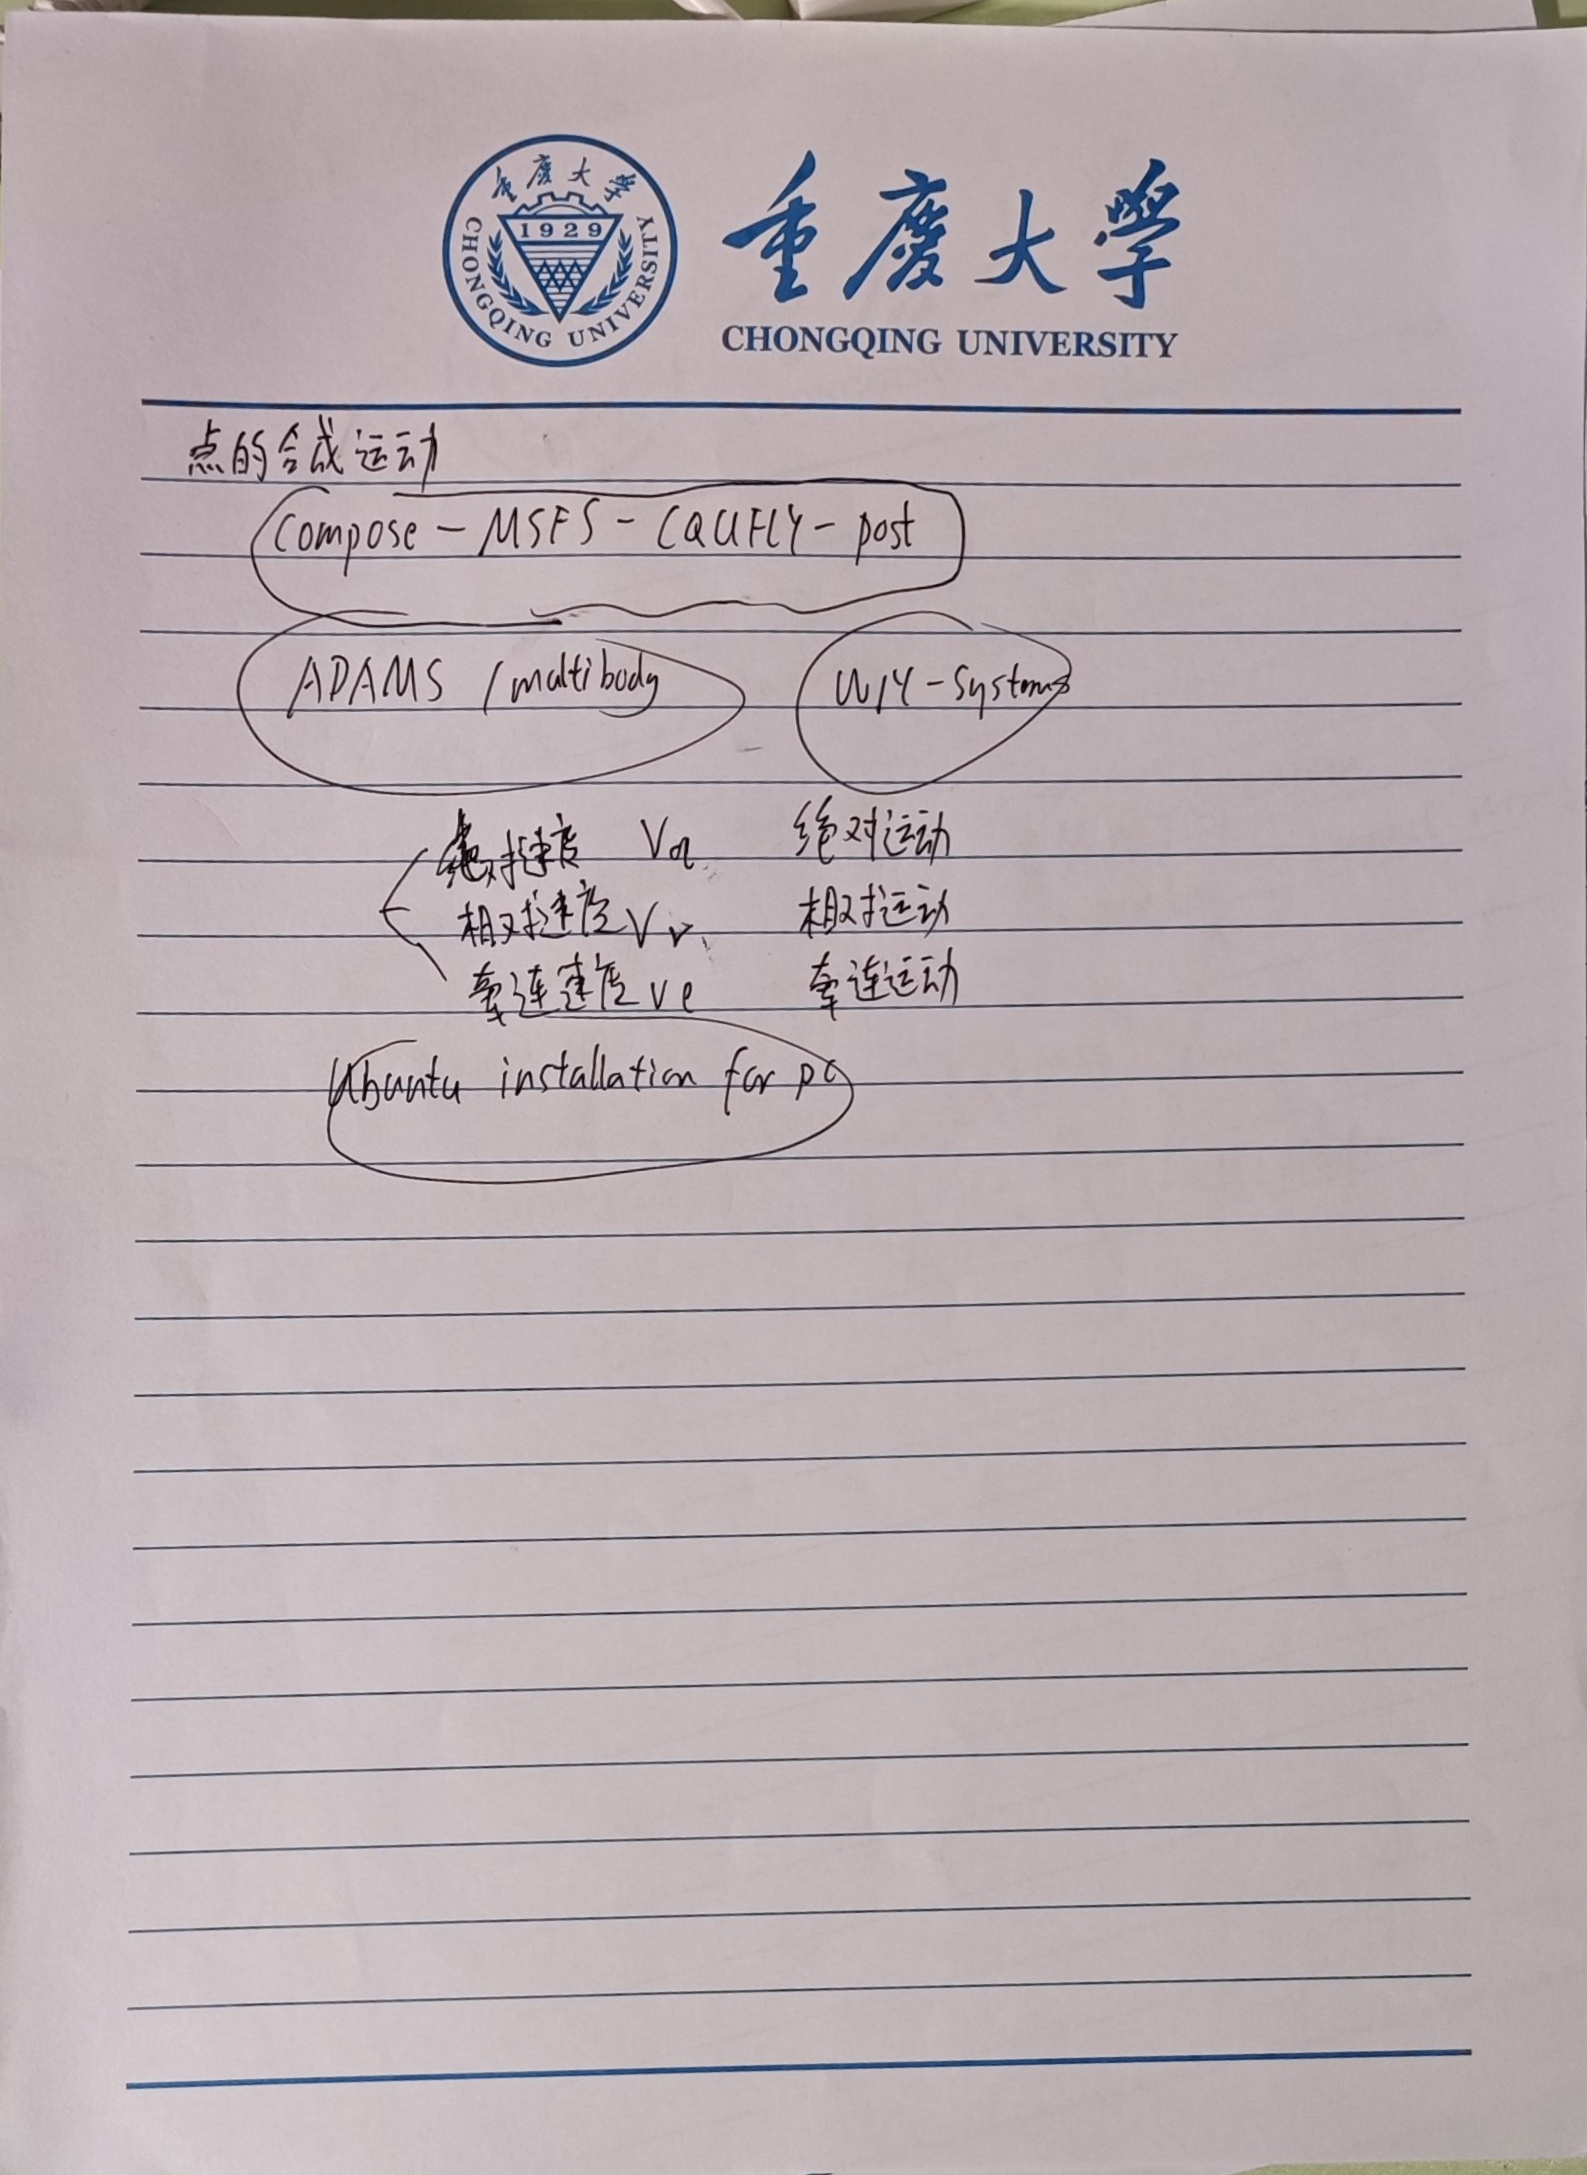 重庆大学
1929
CHONGQING UNIVERSITY
重庆大学
CHONGQING UNIVERSITY
点的合成运动
Compose - MSFS - CQUFLY - post
ADAMS / multibody
-Systems
绝对速度 Va 绝对运动
相对速度 Vr 相对运动
牵连速度 Ve 牵连运动
Ubuntu installation for pc